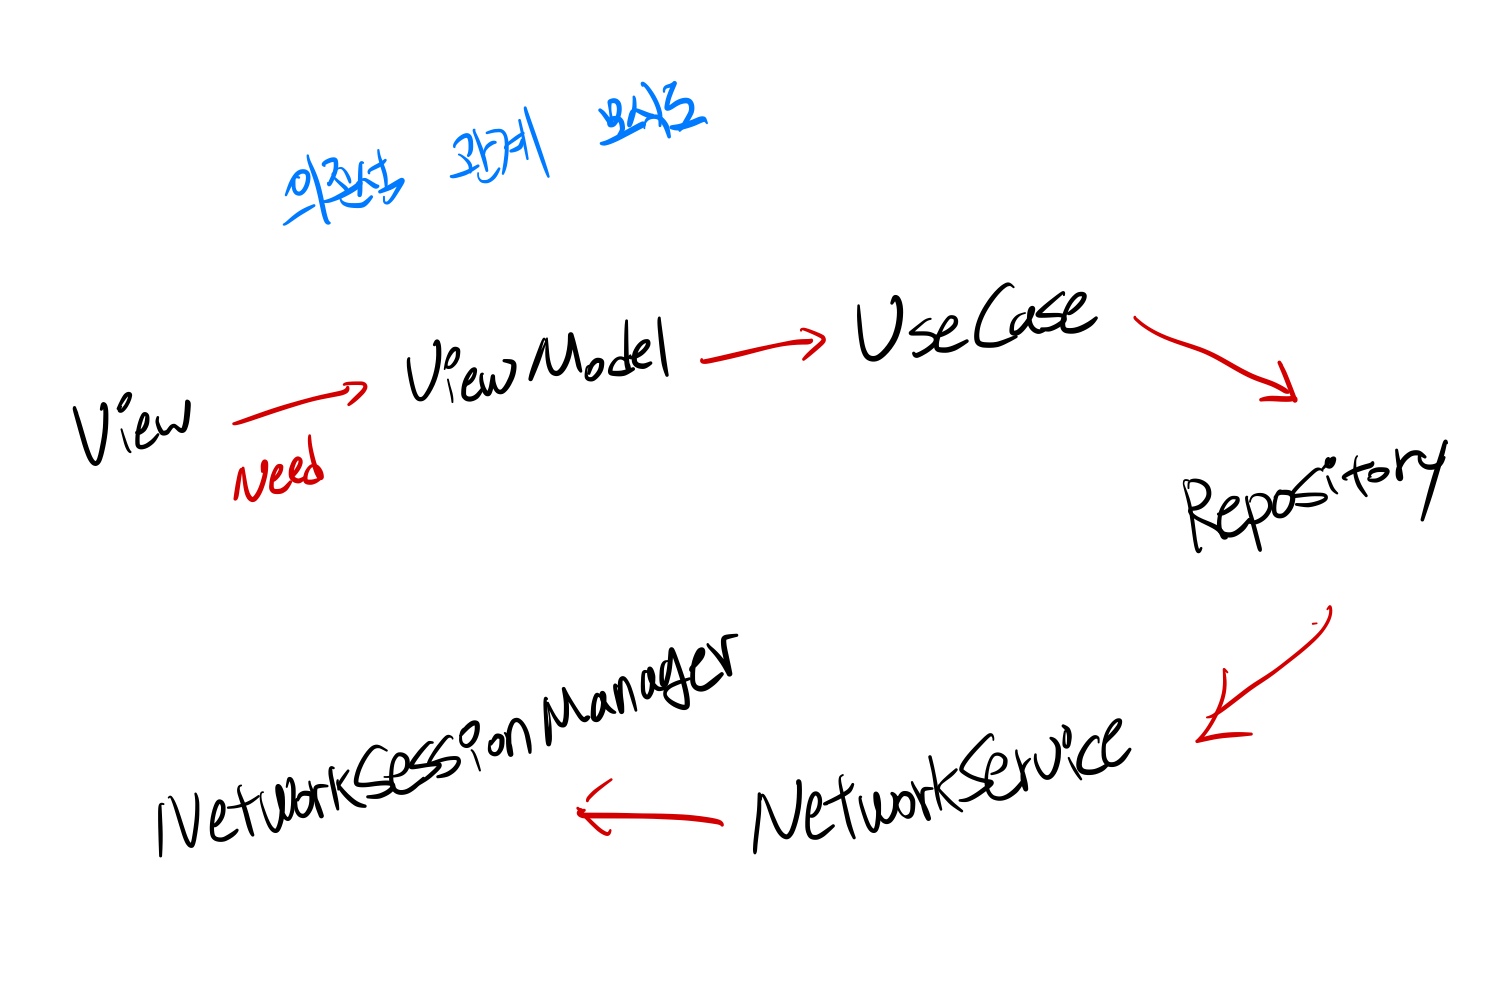 의존성 관계 모식도
View
Need
ViewModel
UseCase
Repository
NetworkService
NetworkSessionManager